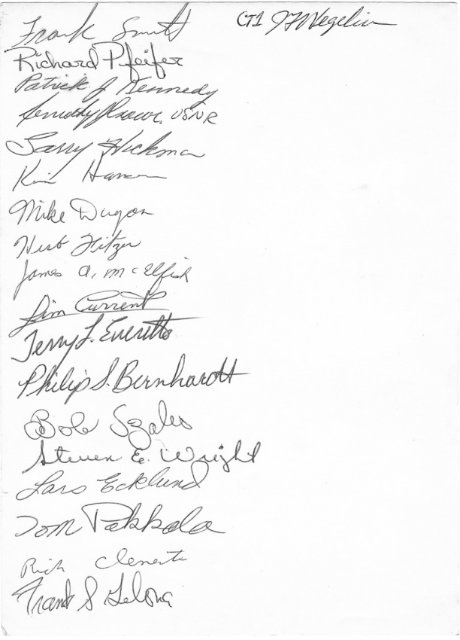 Frank Smith
Richard Pfeifer
Patrick J Kennedy
Timothy Rowe, USNR
Larry Hickman
Kim
Mike Dugan
Herb Fitzer
James A. McElfish
Jim Current
Terry L. Everetts
Philip S. Bernhardt
Bob Szales
Steven E. Wright
Lars Ecklund
Tom Pakkala
Rich Clement
Frank S
CT1